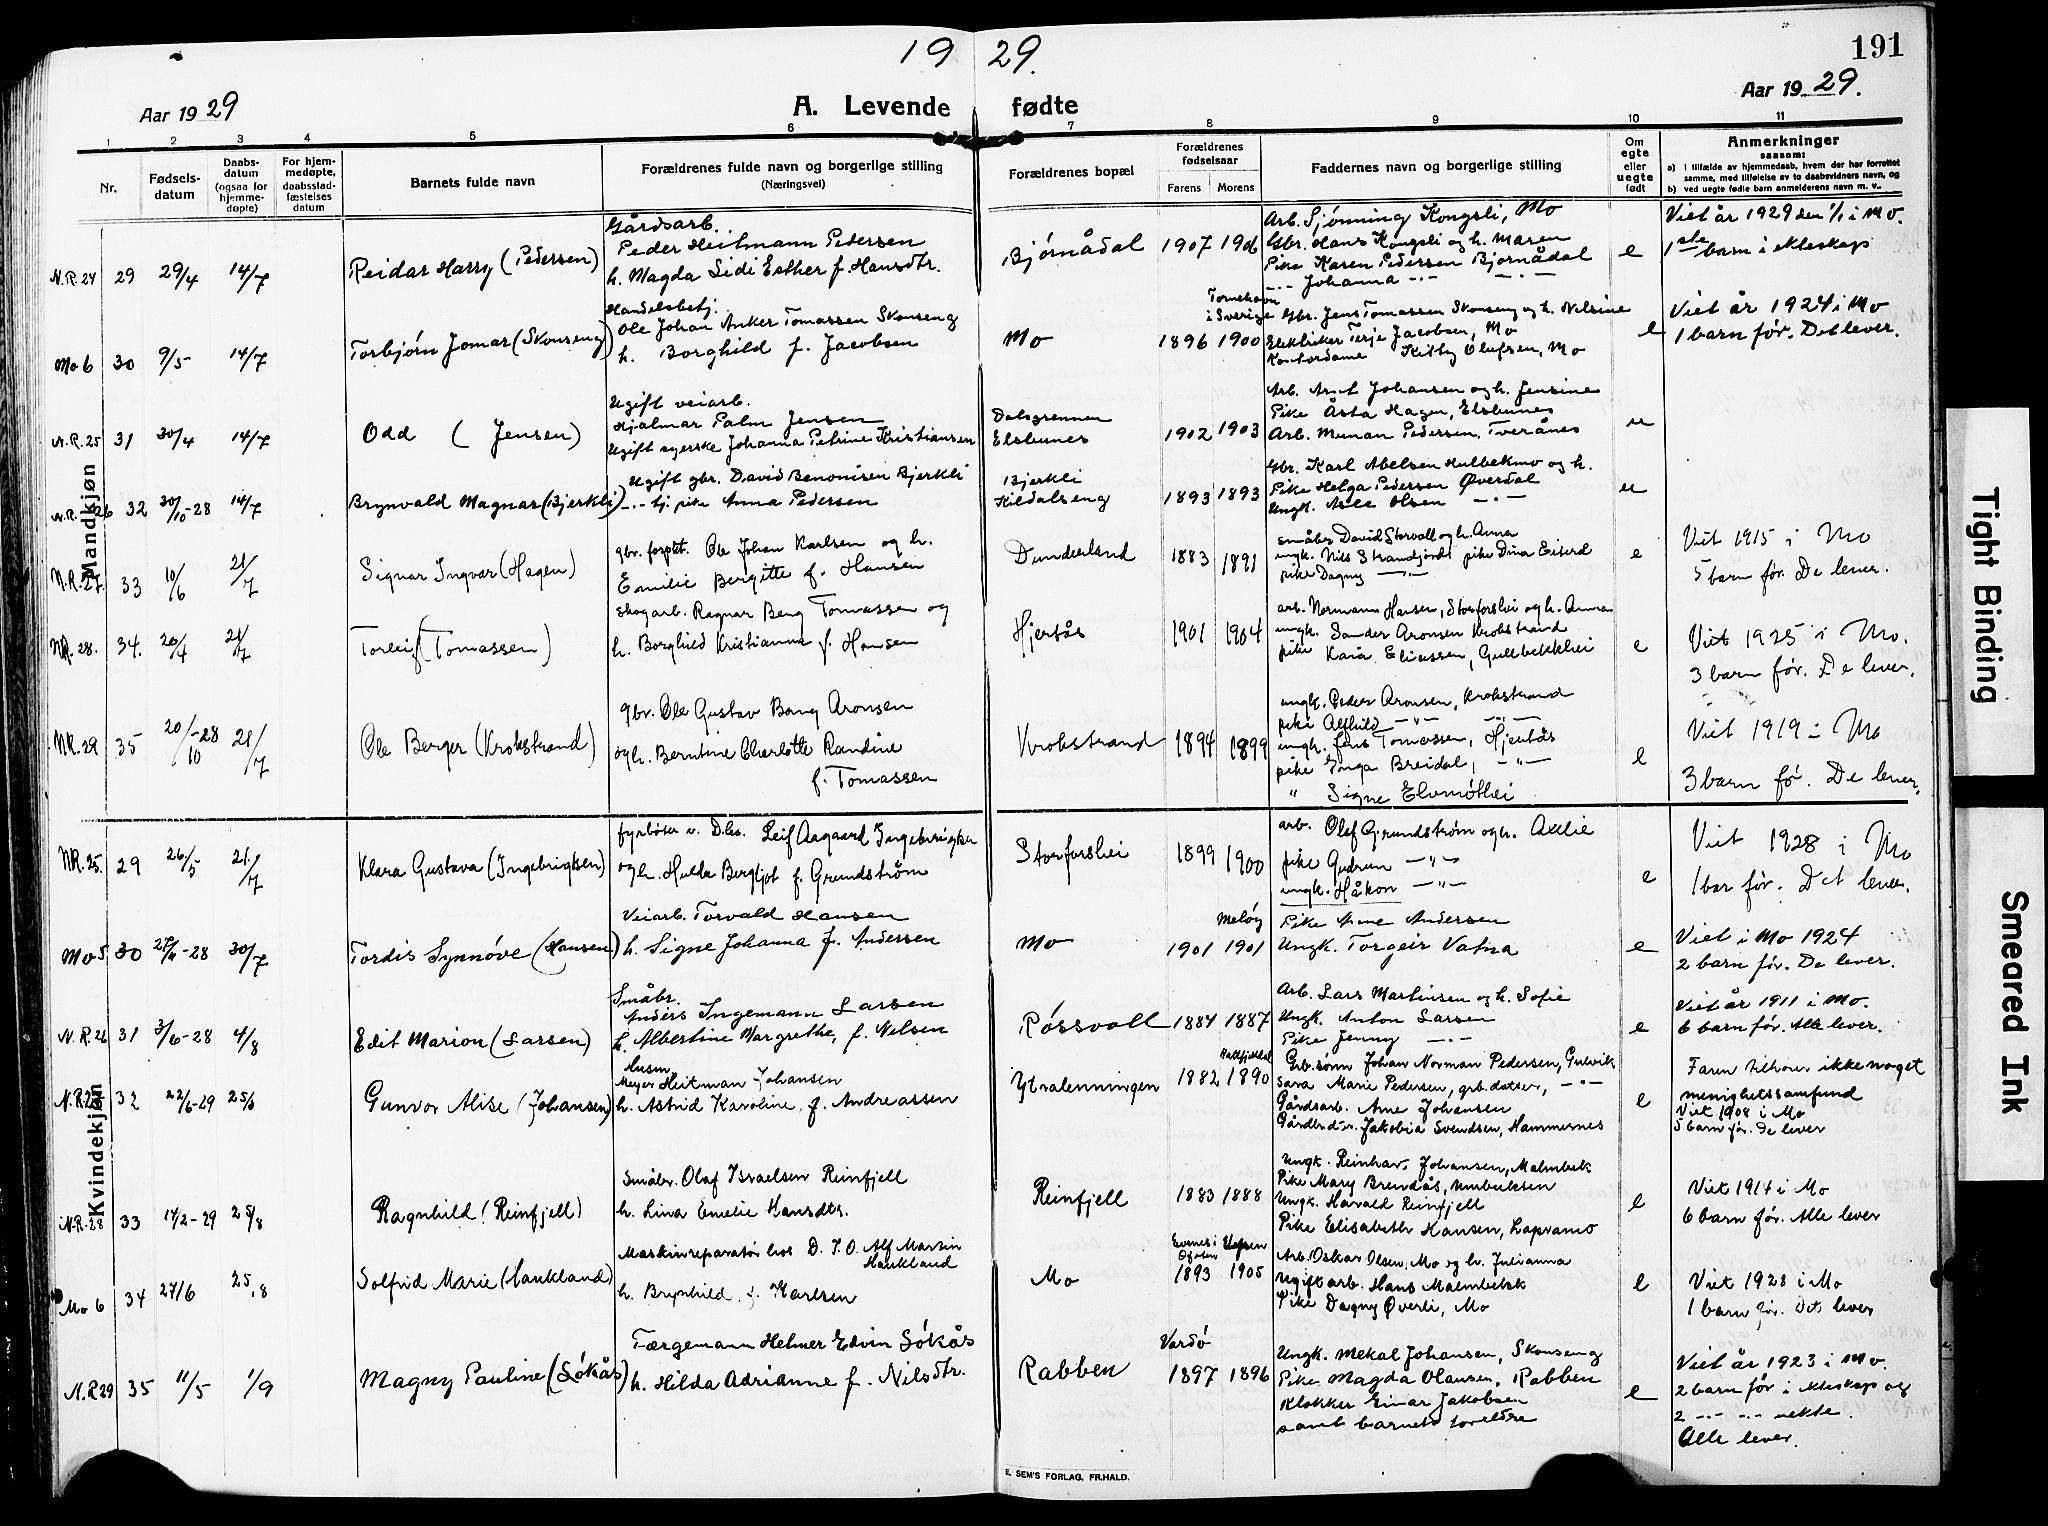 19 29.
191
Aar 1929
A. Levende fødte
Aar 1929.
1 2 3 4 5 6 7 8 9 10 11
Nr.
Fødsels-datum
Daabs-datum (ogsaa for hjemme-døpte)
For hjem-medøpte, daabsstad-fæstelses datum
Barnets fulde navn
Forældrenes fulde navn og borgerlige stilling (Næringsvei)
Forældrenes bopæl
Forældrenes fødselsaar
Farens Morens
Faddernes navn og borgerlige stilling
Om egte eller uegte født
Anmerkninger
saasom:
a) i tilfælde av hjemmedaab, hvem der har forrettet samme, med tilføielse av to daabsvidners navn, og
b) ved uegte fødte barn anmelderens navn m. v..
Mandkjøn
N.R. 24 29 29/4 14/7 Reidar Harry (Pedersen)
Gårdsarb.
Peder Heitmann Pedersen
h. Magda Lidi Esther f. Hansdtr.
Bjørnådal 1907 1906
Arb. Sjønning Kongsli, Mo
Gbr. Hans Kongsli og h. Maren
Pike Karen Pedersen Bjørnådal
-"- Johanna -"- -"-
e
Viet år 1929 den 1/1 i Mo.
1ste barn i ekteskap
Mo 6 30 9/5 14/7 Torbjørn Jomar (Skonseng)
Handelsbetj.
Ole Johan Anker Tomassen Skonseng
h. Borghild f. Jacobsen
Mo 1896 1900
Tornehavn i Sverige
Gbr. Jens Tomassen Skonseng og h. Nilsine
Elektriker Terje Jacobsen, Mo
Kontordame Kitty Olufsen, Mo
e
Viet år 1924 i Mo
1 barn før. Det lever.
N.R. 25 31 30/4 14/7 Odd (Jensen)
Ugift veiarb.
Hjalmar Palm Jensen
Ugift syerske Johanna Petrine Kristiansen
Dalsgrennen
Elsbunes
1902 1903
Arb. Arnt Johansen og h. Jensine
Pike Åsta Hagen, Elsbunes
Arb. Muman Pedersen, Tverånes
u
N.R. 26 32 30/10-28 14/7 Brynvald Magnar (Bjerkli)
Ugift gbr. David Benonisen Bjerkli
-"- tj. pike Anna Pedersen
Bjerkli
Kildalseng
1893 1893
Gbr. Karl Abelsen Hulbekmo og h.
Pike Helga Pedersen Øverdal
Ungk. Asle Olsen -"-
u
N.R. 27. 33 10/6 21/7 Signar Ingvar (Hagen)
gbr. forpkt. Ole Johan Karlsen og h.
Emilie Bergitte f. Hansen
Dunderland 1883 1891
småbr. David Storvoll og h. Anna
ungk. Nils Strandjord pike Dina Eiterå
pike Dagny -"-
e
Viet 1915 i Mo
5 barn før. De lever.
NR. 28. 34. 20/4 21/7 Torleif (Tomassen)
skogarb. Ragnar Berg Tomassen og
h. Borghild Kristianna f. Hansen
Hjertås 1901 1904
arb. Normann Hansen, Storforshei og h. Anna
ungk. Sander Aronsen Krokstrand
pike Kaia Eliassen, Gullbekkhei
e
Viet 1925 i Mo.
3 barn før. De lever.
NR. 29 35 20/10-28 21/7 Ole Berger (Krokstrand)
gbr. Ole Gustav Bang Aronsen
og h. Berntine Charlotte Randine
f. Tomassen
Krokstrand 1894 1899
ungk. Peder Aronsen, Krokstrand
pike Alfhild -"- -"-
ungk. Jens Tomassen, Hjertås
pike Inga Breidal, -"-
" Signe Elvmøthei
e
Viet 1919 i Mo
3 barn før. De lever.
Kvindekjøn
NR. 25. 29 26/5 21/7 Klara Gustava (Ingebrigtsen)
fyrbøter v. D.br. Leif Aagaard Ingebrigtsen
og h. Hulda Bergljot f. Grundstrøm
Storforshei 1899 1900
arb. Olaf Grundstrøm og h. Axelie
pike Gudrun -"-
ungk. Håkon -"-
e
Viet 1928 i Mo
1 bar før. Det lever.
Mo 5 30 27/11-28 30/7 Tordis Synnøve (Hansen)
Veiarb. Torvald Hansen
h. Signe Johanna f. Andersen
Mo 1901 1901
Meløy
Pike Anne Andersen
Ungk. Torgeir Vatna
e
Viet i Mo 1924
2 barn før. De lever.
N.R. 26 31 3/6-28 4/8 Edit Marion (Larsen)
Småbr.
Anders Ingemann Larsen
h. Albertine Margrethe, f. Nilsen
Røssvoll 1884 1887
Arb. Lars Martinsen og h. Sofie
Ungk. Anton Larsen
Pike Jenny -"-
e
Viet år 1911 i Mo.
6 barn før. Alle lever.
N.R. 27 32 22/6-29 25/8 Gunvor Alise (Johansen)
Husm.
Meyer Heitman Johansen
h. Astrid Karoline, f. Andreassen
Ytralenningen 1882 1890
Hattfjelldal
Grb.sønn Johan Norman Pedersen, Gulvik
Sara Marie Pedersen, grb.datter, -"-
Gårdsarb. Arne Johansen
Gårdbr.dtr. Jakobia Svendsen, Hammernes
e
Faren tilhører ikke noget
menighetssamfund
Viet 1908 i Mo
5 barn før. De lever
N.R. 28 33 14/2-29 25/8 Ragnhild (Reinfjell)
Småbr. Olaf Israelsen Reinfjell
h. Lina Emelie Hansdtr.
Reinfjell 1883 1888
Ungk. Reinhar. Johansen, Malmbek
Pike Mary Brendås, Umbukten
Ungk. Harald Reinfjell
Pike Elisabeth Hansen, Lapramo
e
Viet 1914 i Mo
6 barn før. Alle lever
Mo 6 34 27/6 25/8 Solfrid Marie (Haukland)
Maskinreparatør hos D. I. O. Alf Martin
Haukland
h. Brynhild, f. Karlsen
Mo
Evenes i Ofoten
Vefsen
1893 1905
Arb. Oskar Olsen, Mo og h. Julianna
Ugift arb. Hans Malmbekk
Pike Dagny Øverli, Mo
e
Viet 1928 i Mo
1 barn før. Det lever
N.R 29 35 11/5 1/9 Magny Pauline (Søkås)
Færgemann Helmer Edvin Søkås
h. Hilda Adrianne f. Nilsdtr.
Rabben
Vardø
1897 1896
Ungk. Mekal Johansen, Skonseng
Pike Magda Olausen, Rabben
Klokker Einar Jakobsen
samt barnets foreldre
e
Viet år 1923 i Mo.
2 barn før i ekteskap og
2 -"- -"- uekte.
Alle lever.
E. SEM'S FORLAG, FR.HALD.
Tight Binding
Smeared Ink